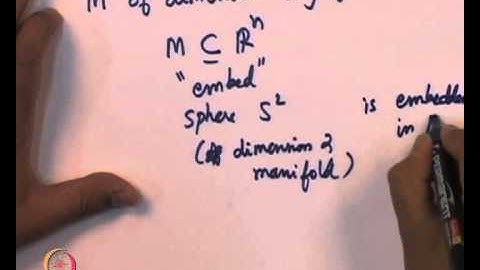 M of dimension
M ⊆ ℝⁿ
"embed"
sphere S² is embedded
(dimension 2 in
manifold)